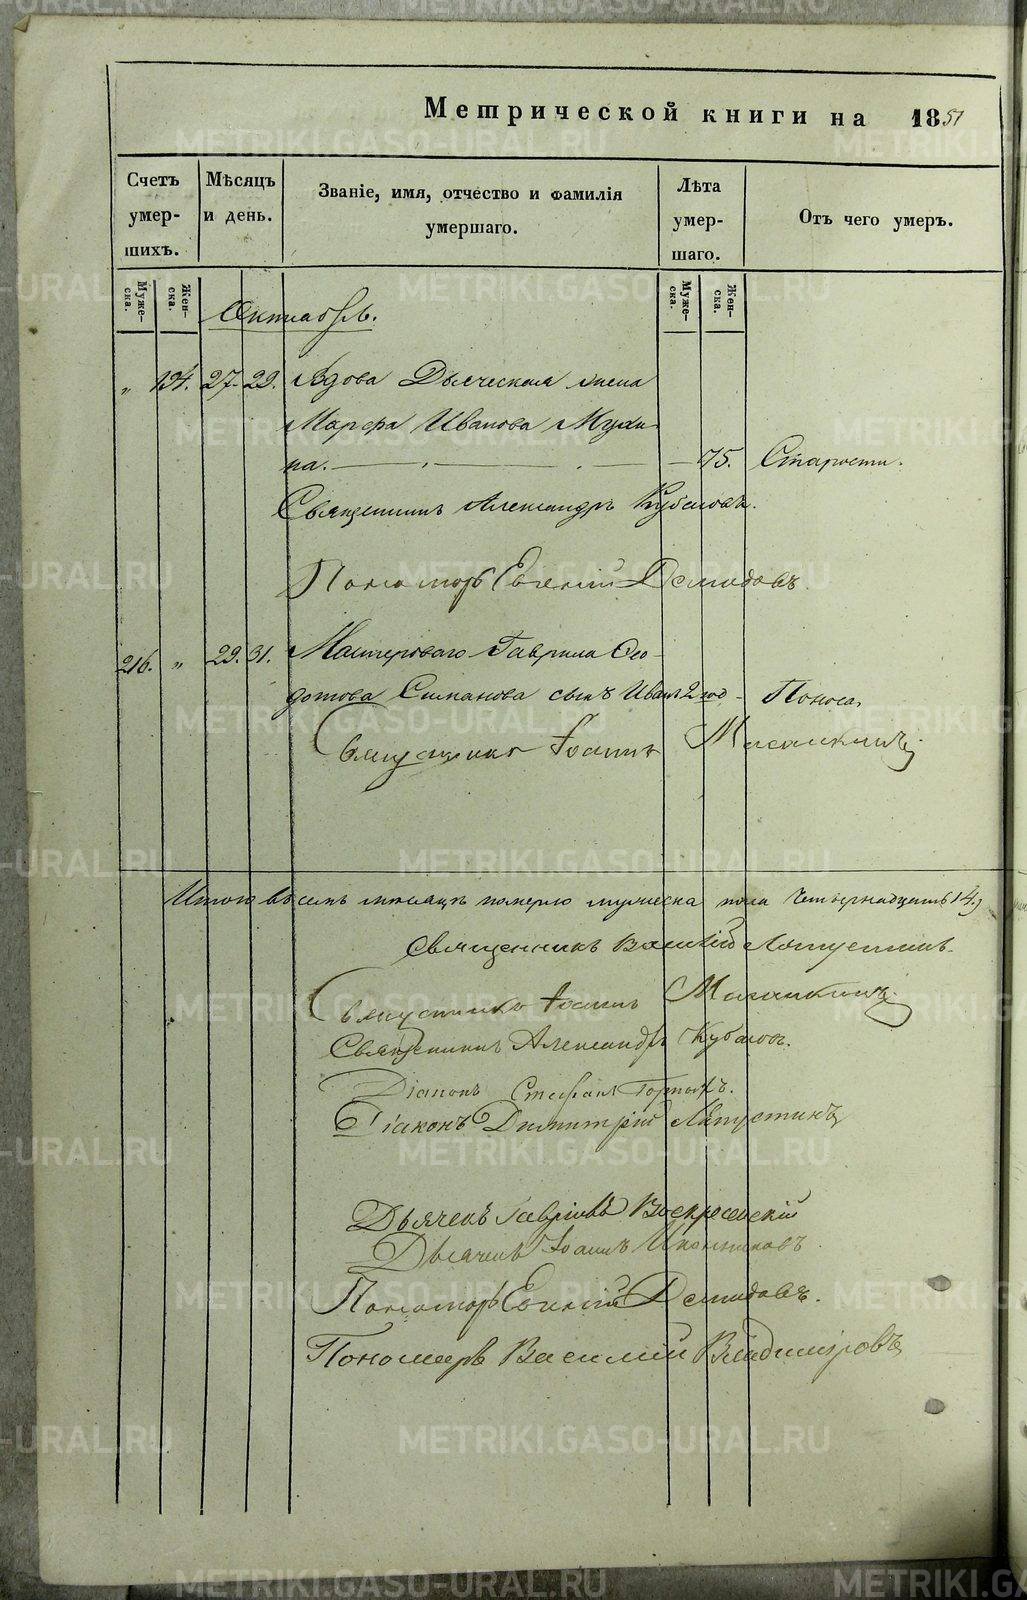 Метрической книги на 1851
Счетъ умер- шихъ.
Мѣсяцъ и день.
Званіе, имя, отчество и фамилія умершаго.
Лѣта умер- шаго.
Отъ чего умеръ.
Муже- ска.
Жен- ска.
Муже- ска.
Жен- ска.
Октябрь.
„ 194. 27. 29. Вдова Дьяческая жена
Марфа Иванова Мухи-
на. 75. Старости.
Священникъ Александръ Кубасовъ.
Пономарь Евгеній Демидовъ.
216. „ 29. 31. Мастероваго Гаврила Ѳео-
дотова Симанова сынъ Иванъ 2 год Поноса,
Священникъ Іоаннъ
Итого въ семъ месяцѣ померло мужеска пола Четырнадцать 14,
Священникъ Василій Ляпустинъ.
Священникъ Іоаннъ
Священникъ Александръ Кубасовъ.
Діаконъ Стефанъ
Діаконъ Димитрій Ляпустинъ
Дьячекъ Гавріилъ Воскресенскій
Дьячекъ Іоаннъ Иконниковъ
Пономарь Евгеній Демидовъ.
Пономарь Василій Владиміровъ
METRIKI.GASO-URAL.RU